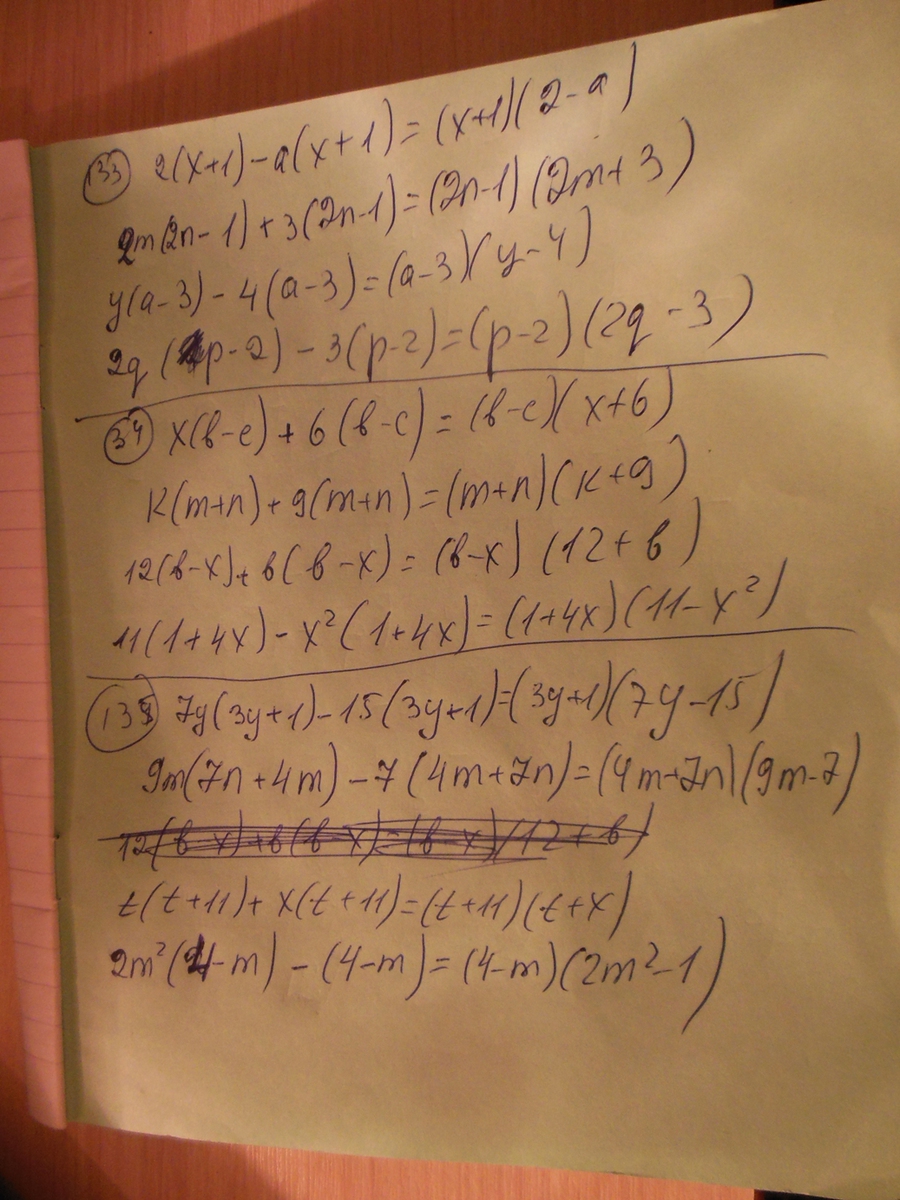 133 2(x+1)-a(x+1)=(x+1)(2-a)
2m(2n-1)+3(2n-1)=(2n-1)(2m+3)
y(a-3)-4(a-3)=(a-3)(y-4)
2q(p-2)-3(p-2)=(p-2)(2q-3)
34 x(в-с)+6(в-с)=(в-с)(x+6)
к(m+n)+9(m+n)=(m+n)(к+9)
12(в-x)+в(в-x)=(в-x)(12+в)
11(1+4x)-x²(1+4x)=(1+4x)(11-x²)
135 7y(3y+1)-15(3y+1)=(3y+1)(7y-15)
9m(7n+4m)-7(4m+7n)=(4m+7n)(9m-7)
12(в-x)+в(в-x)=(в-x)(12+в)
t(t+11)+x(t+11)=(t+11)(t+x)
2m²(4-m)-(4-m)=(4-m)(2m²-1)